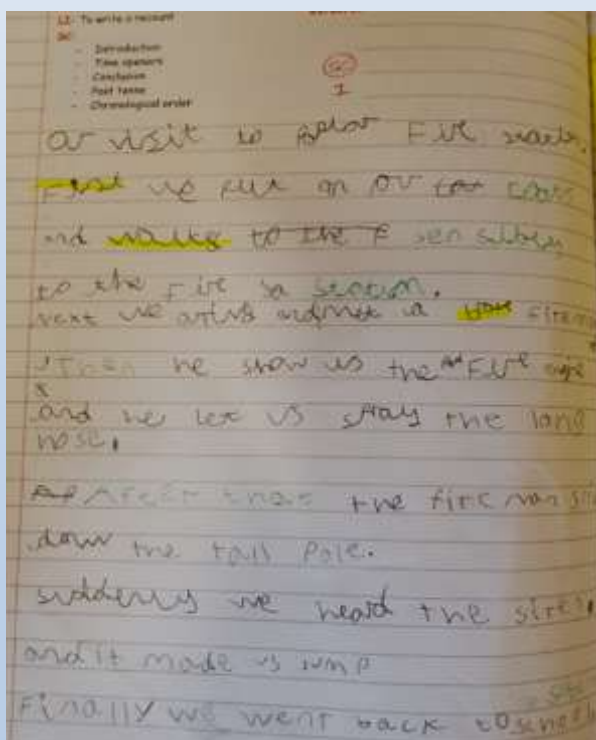 LI- To write a recount
SC:
- Introduction
- Time openers
- Conclusion
- Past tense
- Chronological order
SC
I
Or visit to Fire
First we put on ov coats
and walk to the sensibley
to the Fire Sa Section.
next we and met a firem
Then he show us the Fire
and he let us spray the long
hose.
After that the fire man sli
dow the tall Pole.
suddenly we heard the siren,
and it made us jump
Finally we went back to school